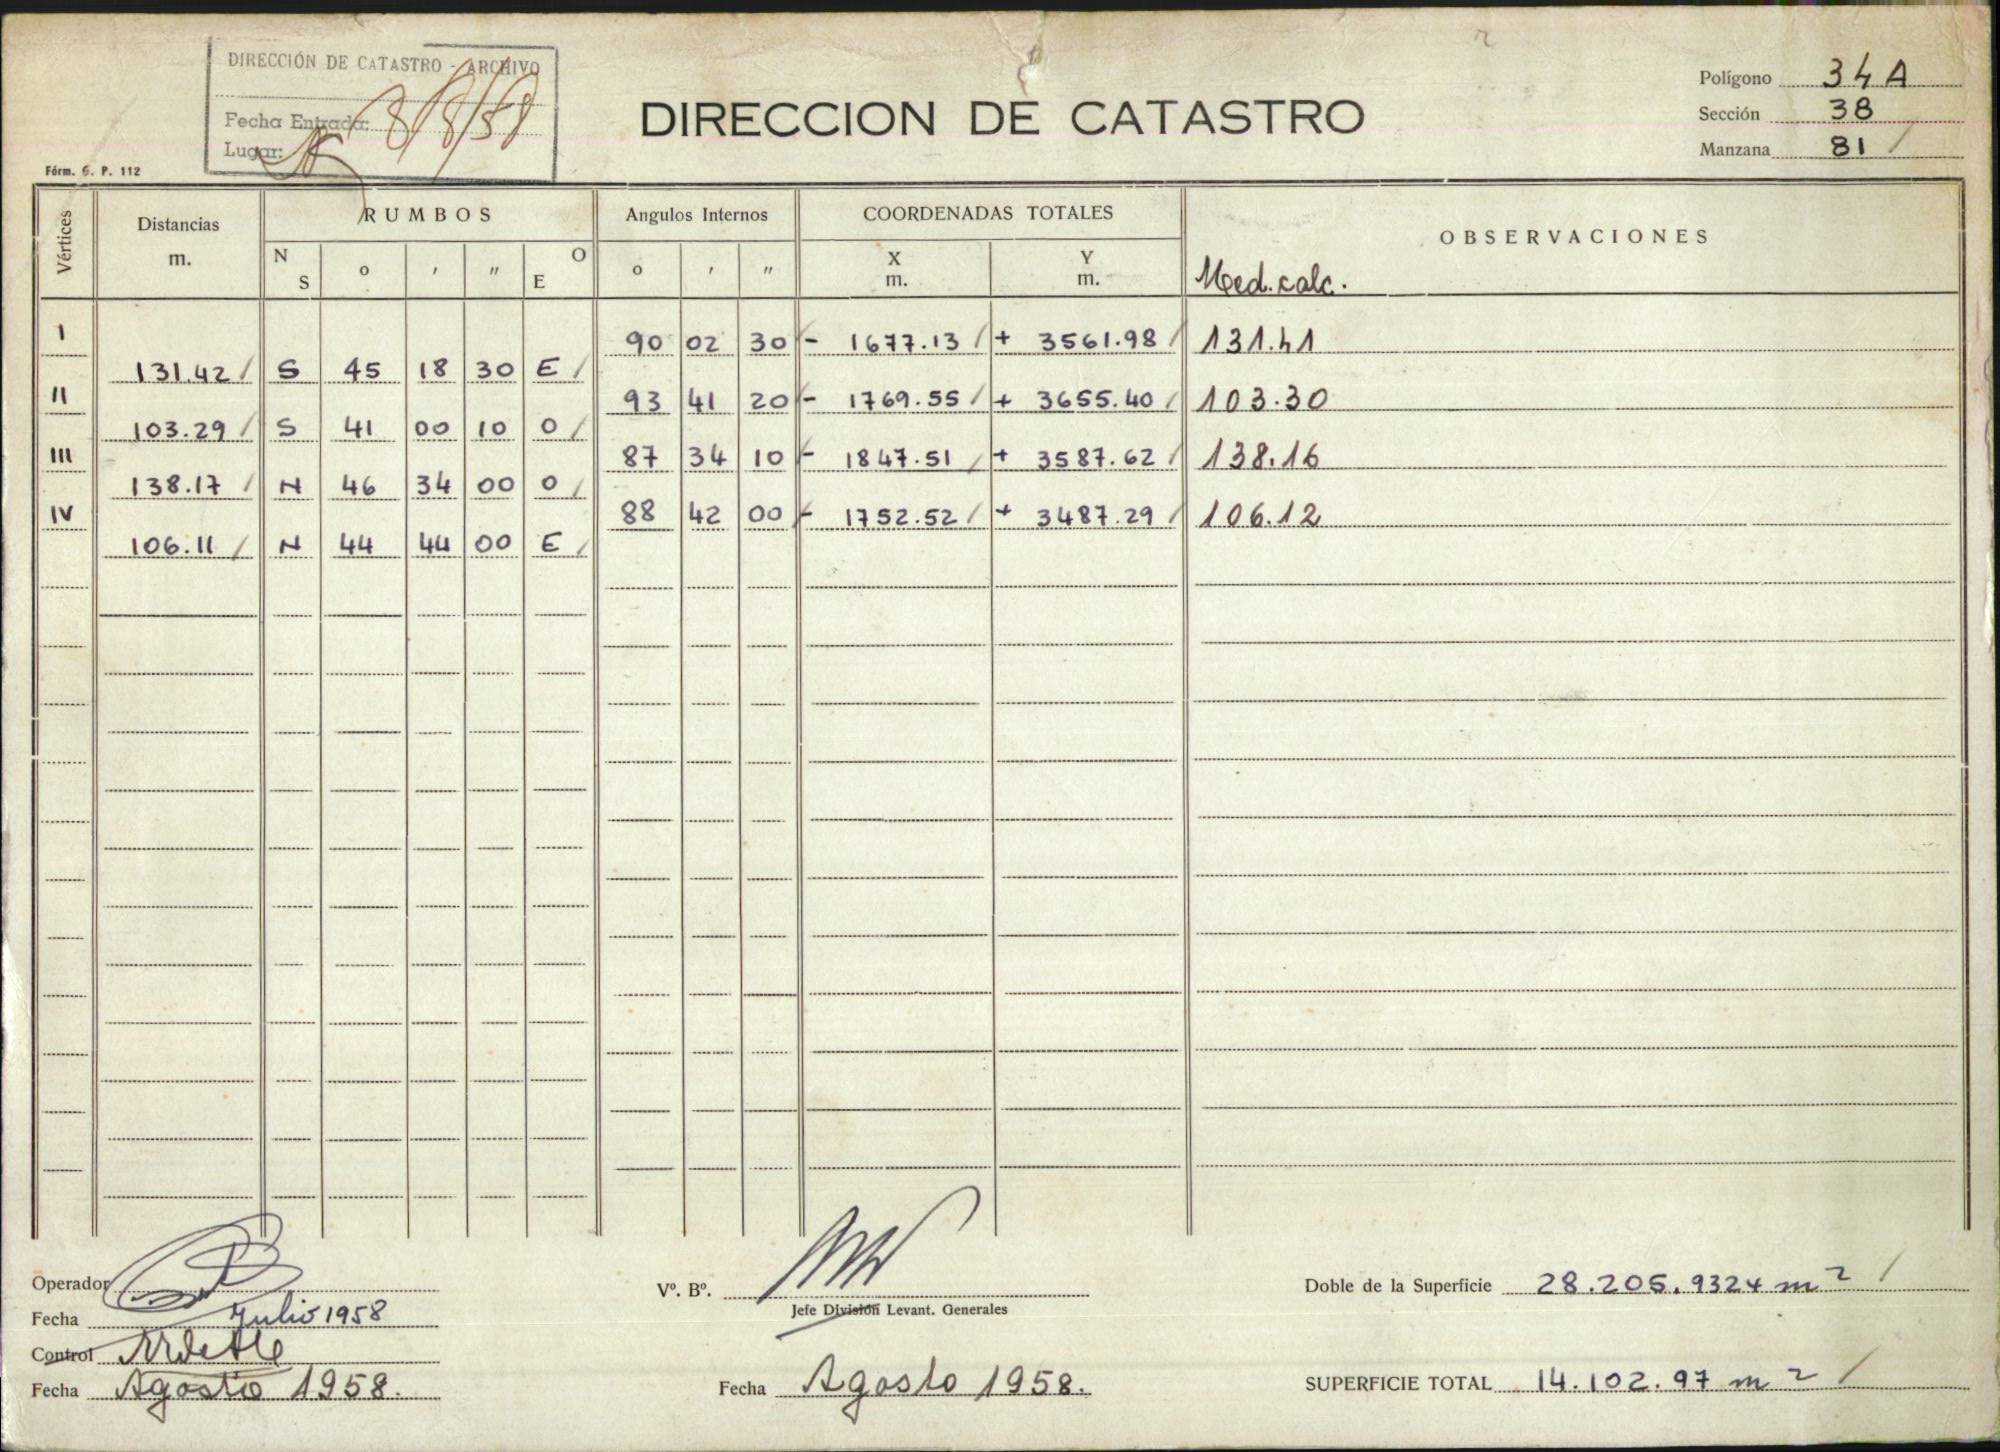 DIRECCIÓN DE CATASTRO - ARCHIVO
Fecha Entrada: 8/8/58
Lugar:
DIRECCION DE CATASTRO
Polígono 34 A
Sección 38
Manzana 81 /
Fórm. G. P. 112
Vértices Distancias m. RUMBOS Angulos Internos COORDENADAS TOTALES OBSERVACIONES
N S o ' " O E o ' " X m. Y m. Med. calc.
I 90 02 30 - 1677.13 / + 3561.98 / 131.41
131.42 / S 45 18 30 E /
II 93 41 20 - 1769.55 / + 3655.40 / 103.30
103.29 / S 41 00 10 O /
III 87 34 10 - 1847.51 / + 3587.62 / 138.16
138.17 / N 46 34 00 O /
IV 88 42 00 - 1752.52 / + 3487.29 / 106.12
106.11 / N 44 44 00 E /
Operador
Fecha Julio 1958
Control
Fecha Agosto 1958.
Vº. Bº.
Jefe División Levant. Generales
Fecha Agosto 1958.
Doble de la Superficie 28.205.9324 m² /
SUPERFICIE TOTAL 14.102.97 m² /